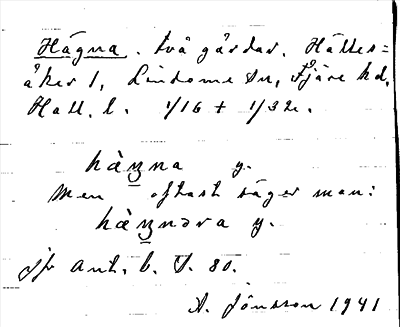 Hägna. två gårdar. Hättes=
åker 1, Lindome sn, Fjäre hd,
Hall. l. 1/16 + 1/32.
hàŋna y.
Men oftast säger man:
hàŋnəra y.
Jfr Ant. b. s. 80.
A. Jönsson 1941